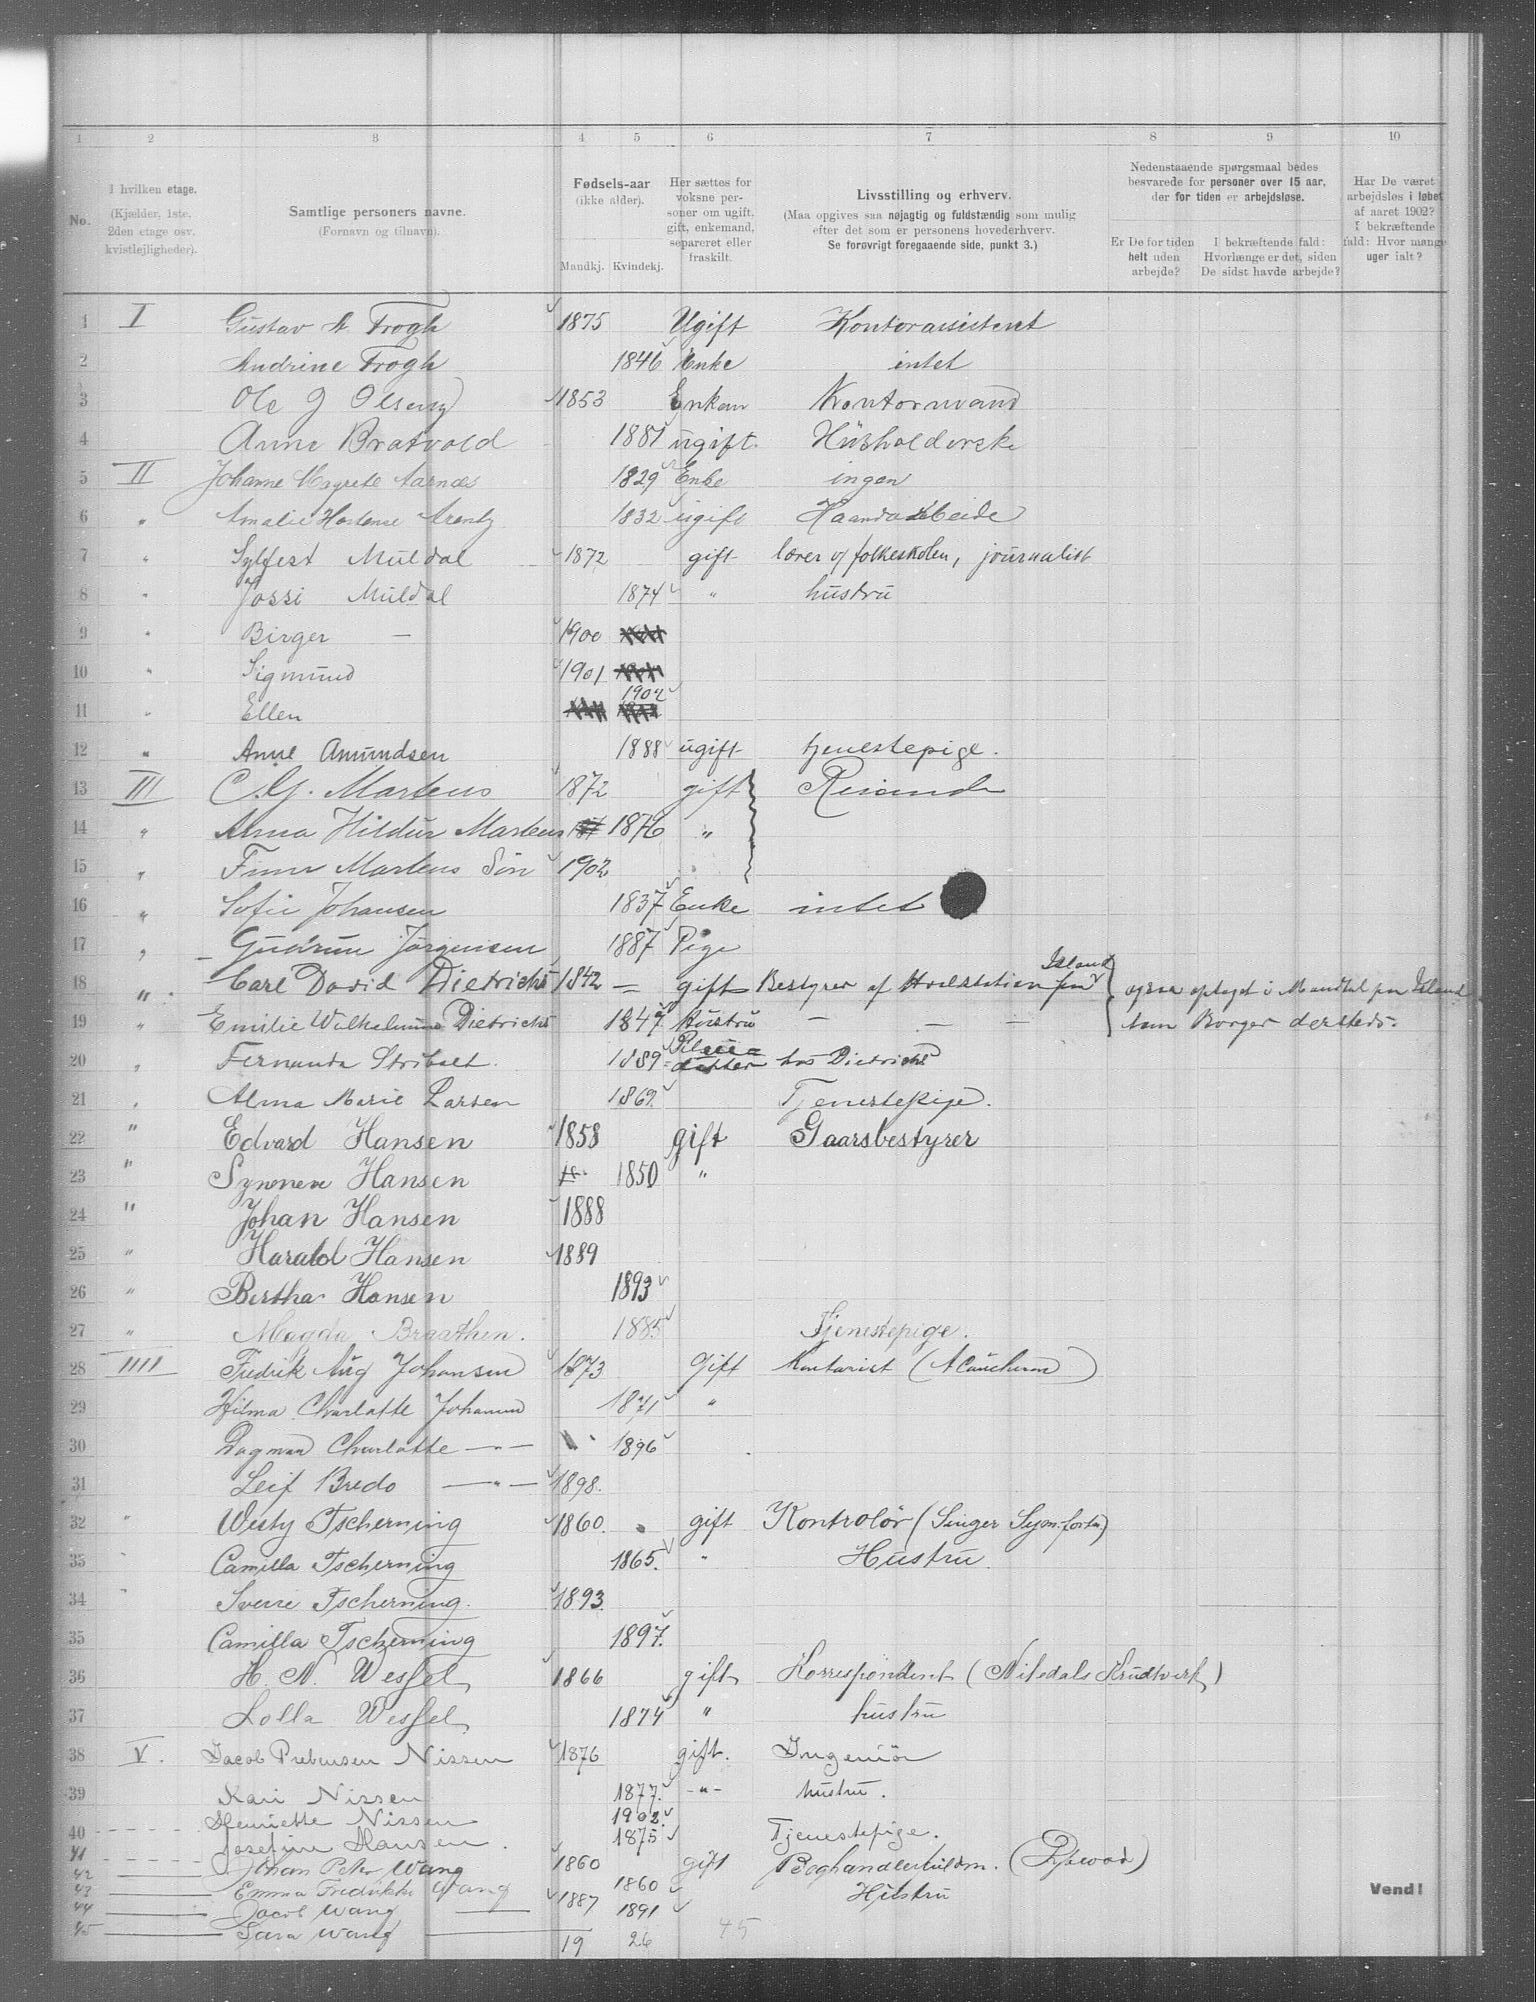 1 2 3 4 5 6 7 8 9 10
No.
I hvilken etage. (Kjælder, 1ste, 2den etage osv. kvistlejligheder).
Samtlige personers navne. (Fornavn og tilnavn).
Fødsels-aar (ikke alder). Mandkj. Kvindekj.
Her sættes for voksne personer om ugift, gift, enkemand, separeret eller fraskilt.
Livsstilling og erhverv. (Maa opgives saa nøjagtig og fuldstændig som mulig efter det som er personens hovederhverv. Se forøvrigt foregaaende side, punkt 3.)
Nedenstaaende spørgsmaal bedes besvarede for personer over 15 aar, der for tiden er arbejdsløse.
Er De for tiden helt uden arbejde?
I bekræftende fald: Hvorlænge er det, siden De sidst havde arbejde?
Har De været arbejdsløs i løbet af aaret 1902? I bekræftende fald: Hvor mange uger ialt?
1 I Gustav A Trogh 1875 Ugift Kontorassistent
2 Andrine Trogh 1846 Enke intet
3 Ole J Olseng 1853 Enkem Kontormand
4 Anne Bratvold 1881 ugift. Husholderske
5 II Johanne Margrete Aarnæs 1829 Enke ingen
6 " Amalie Hortense Arentz 1832 ugift Haandarbeide
7 " Sylfest Muldal 1872 gift lærer v/ folkeskolen, journalist
8 " Jossi Muldal 1874 " hustru
9 " Birger — 1900
10 " Sigmund 1901
11 " Ellen 1902
12 " Anne Amundsen 1888 ugift tjenestepige.
13 III C. G. Martens 1872 gift Reisende
14 " Alma Hildur Martens 1876 "
15 " Finn Martens Søn 1902
16 " Sofie Johansen 1837 Enke intet
17 " Gudrun Jørgensen 1887 Pige
18 " Carl David Dietrichs 1842 — gift Bestyrer af Hvalstation paa Island ogsaa optaget i Mandtal paa Island
19 " Emilie Wilhelmine Dietrichs 1847 Hustru — — — som Borger dersteds.
20 " Fernanda Stribolt. 1889 Pleiedatter hos Dietrichs
21 " Alma Marie Larsen 1869. Tjenestepige.
22 " Edvard Hansen 1858 gift Gaarsbestyrer
23 " Synneve Hansen 1850 "
24 " Johan Hansen 1888
25 " Harald Hansen 1889
26 " Bertha Hansen 1893
27 " Magda Braathen. 1885 Tjenestepige.
28 IIII Fredrik Aug Johansen 1873 Gift Kontorist
29 Hilma Charlotte Johansen 1871 "
30 Dagmar Charlotte —"— 1896
31 Leif Bredo —"— 1898.
32 " Westy Tscherning 1860. gift Kontrolør (Singer Sym. fortn)
33 Camilla Tscherning 1865. " Hustru
34 " Sverre Tscherning. 1893.
35 Camilla Tscherning 1897.
36 H. N. Wessel 1866 gift Korrespondent (Nitedals Krudtverk)
37 Lolla Wessel 1874 " hustru
38 V. Jacob Prebensen Nissen 1876 gift. Ingeniør
39 Kari Nissen 1877. —"— hustru.
40 Henriette Nissen 1902.
41 Josefine Hansen. 1875 Tjenestepige.
42 Johan Peter Wang 1860 gift Boghandlerfuldm.
43 Emma Fredrikke Wang 1860 Hustru
44 Jacob Wang 1887
45 Sara Wang 1891
19 26 45
Vend!